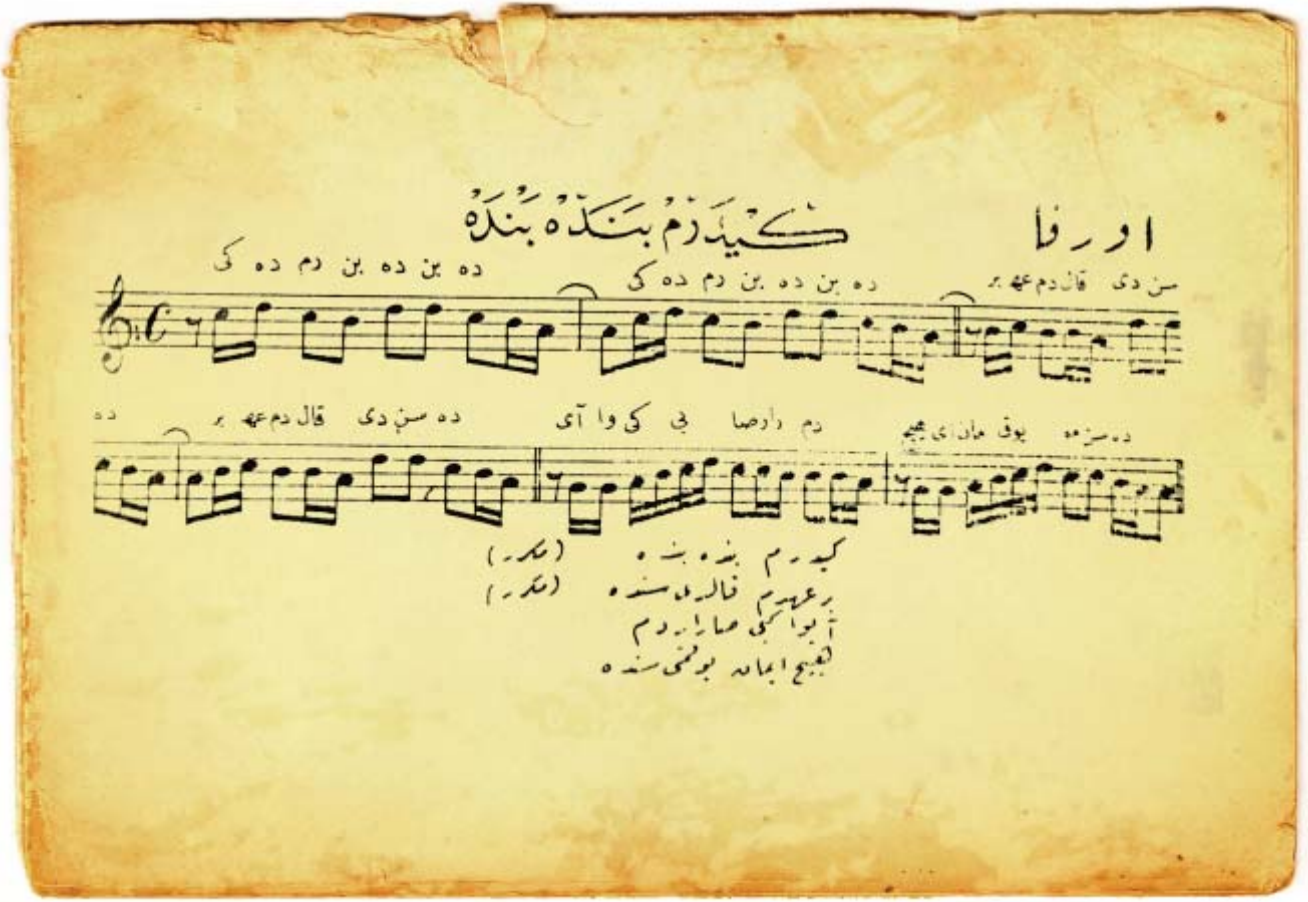 اورفا
كيدَرمْ بَنَدَه بَنْدَه
كی ده رم بن ده بن ده كی ده رم بن ده بن ده بر عهـ دم قال دی سن
ده بر عهـ دم قال دی سن ده آی وا كی بی صا رارد دم هيچ ای مان يوق مه سن ده
كيدرم بنده بنده (مكرر)
بر عهدم قالدی سنده (مكرر)
آيوا كبی صاراردم
هيچ ايمان يوقمی سنده